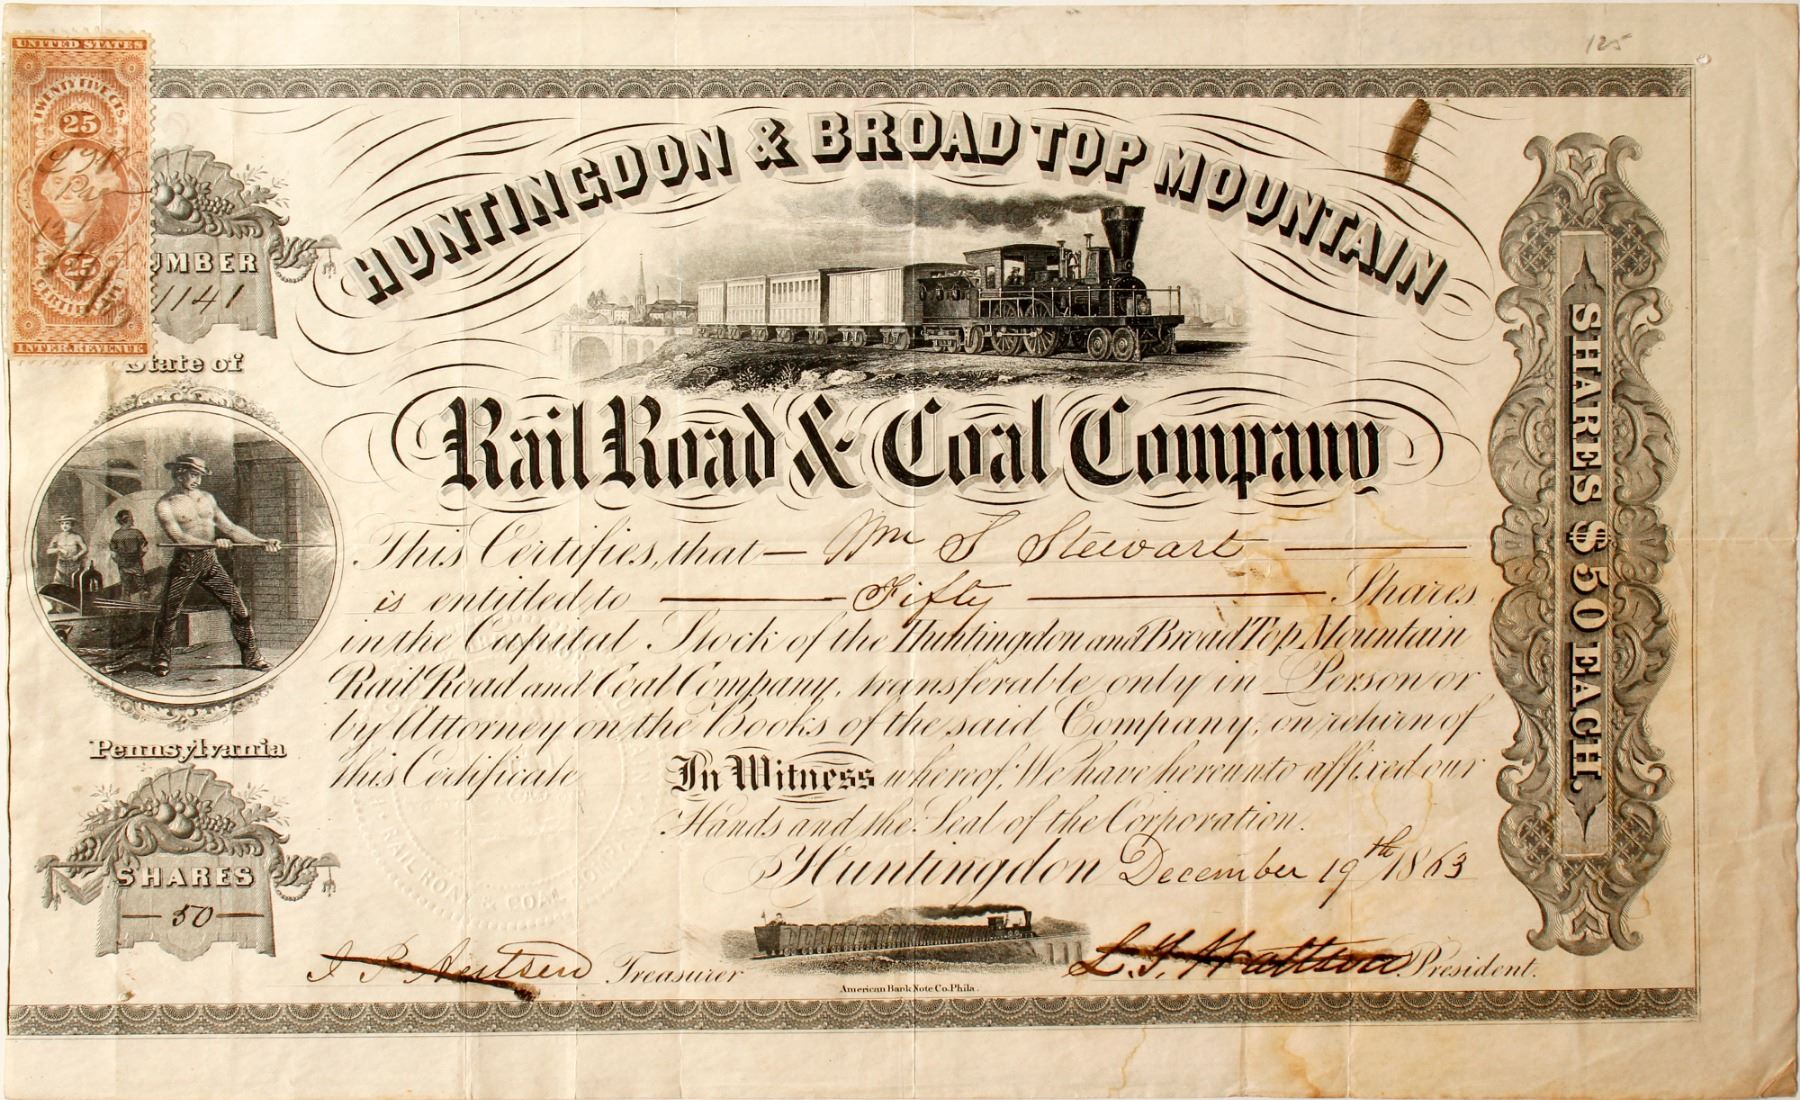 125
UNITED STATES
TWENTY FIVE CTS.
25
25
CERTIFICATE
INTER. REVENUE
UMBER
1141
State of
Pennsylvania
SHARES
50
HUNTINGDON & BROAD TOP MOUNTAIN
Rail Road & Coal Company
This Certifies, that Wm S Stewart
is entitled to Fifty Shares
in the Capital Stock of the Huntingdon and Broad Top Mountain
Rail Road and Coal Company, transferable only in Person or
by Attorney on the Books of the said Company, on return of
this Certificate In Witness whereof, We have hereunto affixed our
Hands and the Seal of the Corporation.
Huntingdon December 19th 1863
RAIL ROAD & COAL
Treasurer
American Bank Note Co. Phila.
President.
SHARES $50 EACH.